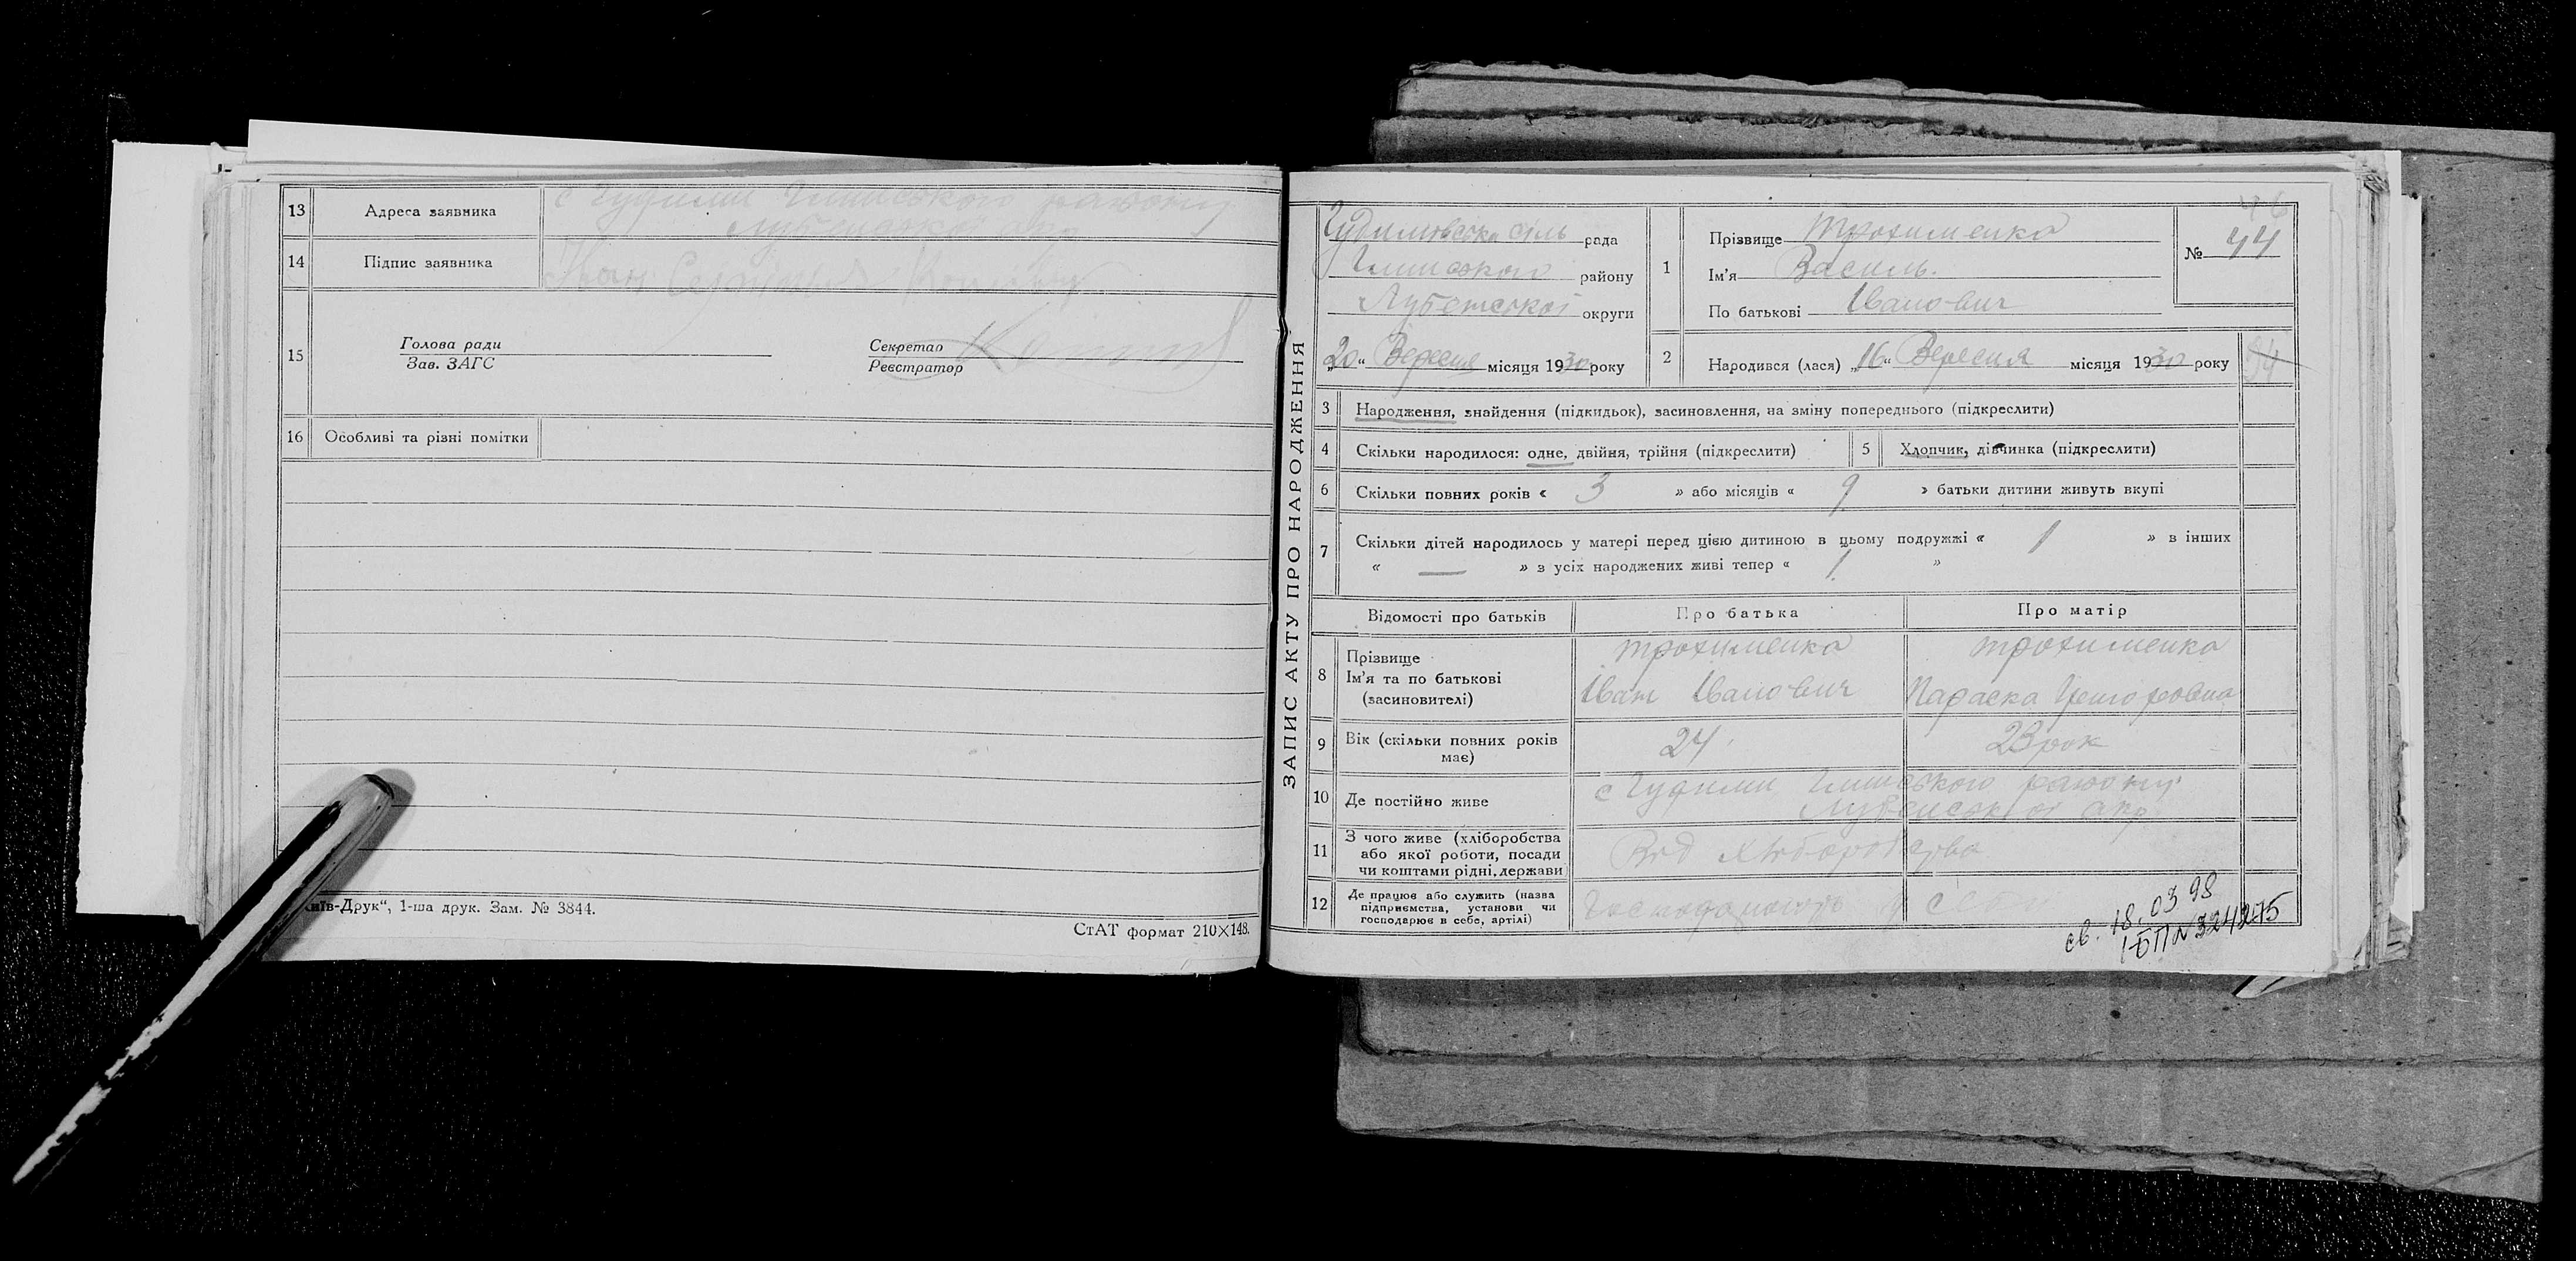 13 Адреса заявника с Гудими Глинського району
Лубенської окр
14 Підпис заявника Іван
15 Голова ради
Зав. ЗАГС
Секретар
Реєстратор
16 Особливі та різні помітки
иїв-Друк“, 1-ша друк. Зам. № 3844.
СтАТ формат 210×148.
ЗАПИС АКТУ ПРО НАРОДЖЕННЯ
Гудимівська сіль рада
Глинського району
Лубенської округи
„20“ Вересня місяця 1930 року
1 Прізвище Трохименко
Ім'я Василь.
По батькові Іванович
46
№ 44
2 Народився (лася) „16“ Вересня місяця 1930 року
3 Народження, знайдення (підкидьок), засиновлення, на зміну попереднього (підкреслити)
4 Скільки народилося: одне, двійня, трійня (підкреслити) 5 Хлопчик, дівчинка (підкреслити)
6 Скільки повних років « 3 » або місяців « 9 » батьки дитини живуть вкупі
7 Скільки дітей народилось у матері перед цією дитиною в цьому подружжі « 1 » в інших
« — » з усіх народжених живі тепер « 1 »
Відомості про батьків Про батька Про матір
8 Прізвище
Ім'я та по батькові
(засиновителі)
Трохименко
Іван Іванович
Трохименко
Параска Григоровна
9 Вік (скільки повних років
має)
24 23 рок
10 Де постійно живе с Гудими Глинського району
Лубенської окр
11 З чого живе (хліборобства
або якої роботи, посади
чи коштами рідні, держави
Від хліборобства
12 Де працює або служить (назва
підприємства, установи чи
господарює в себе, артілі)
св. 18.03 98
І-БП № 324275